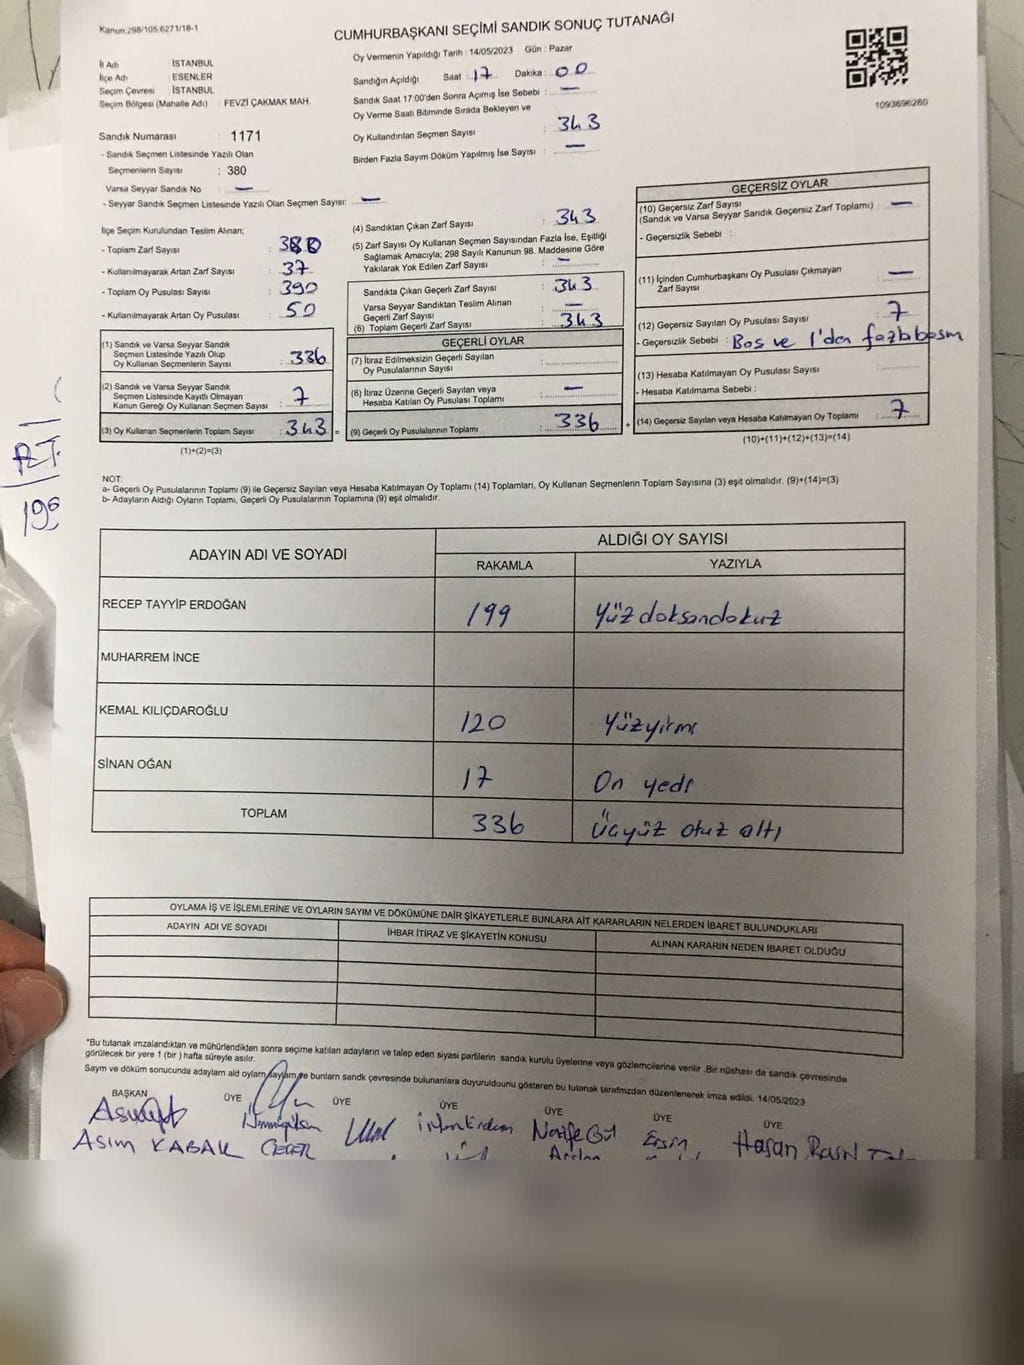 Kanun:298/105;6271/18-1
CUMHURBAŞKANI SEÇİMİ SANDIK SONUÇ TUTANAĞI
İl Adı İSTANBUL
İlçe Adı : ESENLER
Seçim Çevresi : İSTANBUL
Seçim Bölgesi (Mahalle Adı) : FEVZİ ÇAKMAK MAH.
Sandık Numarası : 1171
- Sandık Seçmen Listesinde Yazılı Olan
Seçmenlerin Sayısı : 380
Varsa Seyyar Sandık No : —
- Seyyar Sandık Seçmen Listesinde Yazılı Olan Seçmen Sayısı: —
Oy Vermenin Yapıldığı Tarih : 14/05/2023 Gün : Pazar
Sandığın Açıldığı Saat : 17 Dakika : 00
Sandık Saat 17:00'den Sonra Açımış İse Sebebi : —
Oy Verme Saati Bitiminde Sırada Bekleyen ve
Oy Kullandırılan Seçmen Sayısı : 343
Birden Fazla Sayım Döküm Yapılmış İse Sayısı : —
1093696260
İlçe Seçim Kurulundan Teslim Alınan;
- Toplam Zarf Sayısı : 380
- Kullanılmayarak Artan Zarf Sayısı : 37
- Toplam Oy Pusulası Sayısı : 390
- Kullanılmayarak Artan Oy Pusulası : 50
(1) Sandık ve Varsa Seyyar Sandık
Seçmen Listesinde Yazılı Olup
Oy Kullanan Seçmenlerin Sayısı : 336
(2) Sandık ve Varsa Seyyar Sandık
Seçmen Listesinde Kayıtlı Olmayan
Kanun Gereği Oy Kullanan Seçmen Sayısı : 7
(3) Oy Kullanan Seçmenlerin Toplam Sayısı : 343 =
(1)+(2)=(3)
(4) Sandıktan Çıkan Zarf Sayısı : 343
(5) Zarf Sayısı Oy Kullanan Seçmen Sayısından Fazla İse, Eşitliği
Sağlamak Amacıyla; 298 Sayılı Kanunun 98. Maddesine Göre
Yakılarak Yok Edilen Zarf Sayısı : —
Sandıkta Çıkan Geçerli Zarf Sayısı : 343
Varsa Seyyar Sandıktan Teslim Alınan
Geçerli Zarf Sayısı : —
(6) Toplam Geçerli Zarf Sayısı : 343
GEÇERLİ OYLAR
(7) İtiraz Edilmeksizin Geçerli Sayılan
Oy Pusulalarının Sayısı :
(8) İtiraz Üzerine Geçerli Sayılan veya
Hesaba Katılan Oy Pusulası Toplamı : —
(9) Geçerli Oy Pusulalarının Toplamı : 336 +
GEÇERSİZ OYLAR
(10) Geçersiz Zarf Sayısı
(Sandık ve Varsa Seyyar Sandık Geçersiz Zarf Toplamı) : —
- Geçersizlik Sebebi :
(11) İçinden Cumhurbaşkanı Oy Pusulası Çıkmayan
Zarf Sayısı : —
(12) Geçersiz Sayılan Oy Pusulası Sayısı : 7
- Geçersizlik Sebebi : Boş ve 1'den fazla basım
(13) Hesaba Katılmayan Oy Pusulası Sayısı :
- Hesaba Katılmama Sebebi :
(14) Geçersiz Sayılan veya Hesaba Katılmayan Oy Toplamı : 7
(10)+(11)+(12)+(13)=(14)
NOT:
a- Geçerli Oy Pusulalarının Toplamı (9) ile Geçersiz Sayılan veya Hesaba Katılmayan Oy Toplamı (14) Toplamları, Oy Kullanan Seçmenlerin Toplam Sayısına (3) eşit olmalıdır. (9)+(14)=(3)
b- Adayların Aldığı Oyların Toplamı, Geçerli Oy Pusulalarının Toplamına (9) eşit olmalıdır.
ADAYIN ADI VE SOYADI ALDIĞI OY SAYISI
RAKAMLA YAZIYLA
RECEP TAYYİP ERDOĞAN 199 Yüz doksandokuz
MUHARREM İNCE
KEMAL KILIÇDAROĞLU 120 Yüzyirmi
SİNAN OĞAN 17 On yedi
TOPLAM 336 Üçyüz otuz altı
OYLAMA İŞ VE İŞLEMLERİNE VE OYLARIN SAYIM VE DÖKÜMÜNE DAİR ŞİKAYETLERLE BUNLARA AİT KARARLARIN NELERDEN İBARET BULUNDUKLARI
ADAYIN ADI VE SOYADI İHBAR İTİRAZ VE ŞİKAYETİN KONUSU ALINAN KARARIN NEDEN İBARET OLDUĞU
*Bu tutanak imzalandıktan ve mühürlendikten sonra seçime katılan adayların ve talep eden siyasi partilerin sandık kurulu üyelerine veya gözlemcilerine verilir .Bir nüshası da sandık çevresinde
görülecek bir yere 1 (bir ) hafta süreyle asılır.
Sayım ve döküm sonucunda adaylarn ald oylarn saylarn ve bunlarn sandk çevresinde bulunanlara duyurulduunu gösteren bu tutanak tarafmzdan düzenlenerek imza edildi. 14/05/2023
BAŞKAN ÜYE ÜYE ÜYE ÜYE ÜYE ÜYE
Asım KABAK
Nazife Gül
Ersin
Hasan